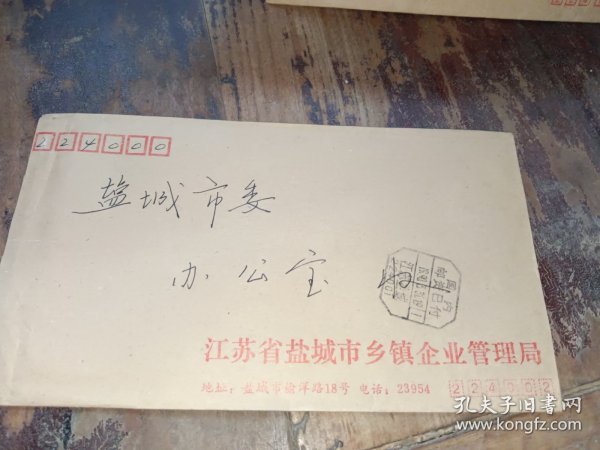 224000
盐城市委
办公室
国内
邮资已付
江苏省盐城市乡镇企业管理局
地址：盐城市榆洋路18号 电话：23954 224202
孔夫子旧书网
www.kongfz.com